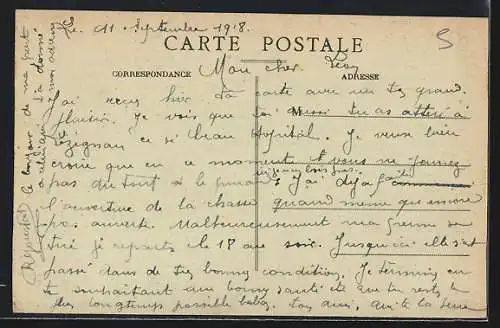 Le 11 Septembre 1918.
CARTE POSTALE
CORRESPONDANCE
ADRESSE
Mon cher Léon
J'ai reçu hier ta carte avec un très grand
plaisir. Je vois que toi aussi tu as atterri à
M
Lézignan ce si beau hôpital. Je veux bien
croire que en ce moment vous ne pouvez
pas du tout J'ai déjà fait
l'ouverture de la chasse quand même que encore
pas ouverte. Malheureusement ma perme se
tire je repars le 18 au soir. Jusqu'ici elle s'est
passé dans de très bonnes conditions. Je termine en
te souhaitant une bonne santé et que tu restes le
plus longtemps possible Ton ami, qui te la serre
le bonjour de ma part
à celui qui t'a donné
mon adresse
S